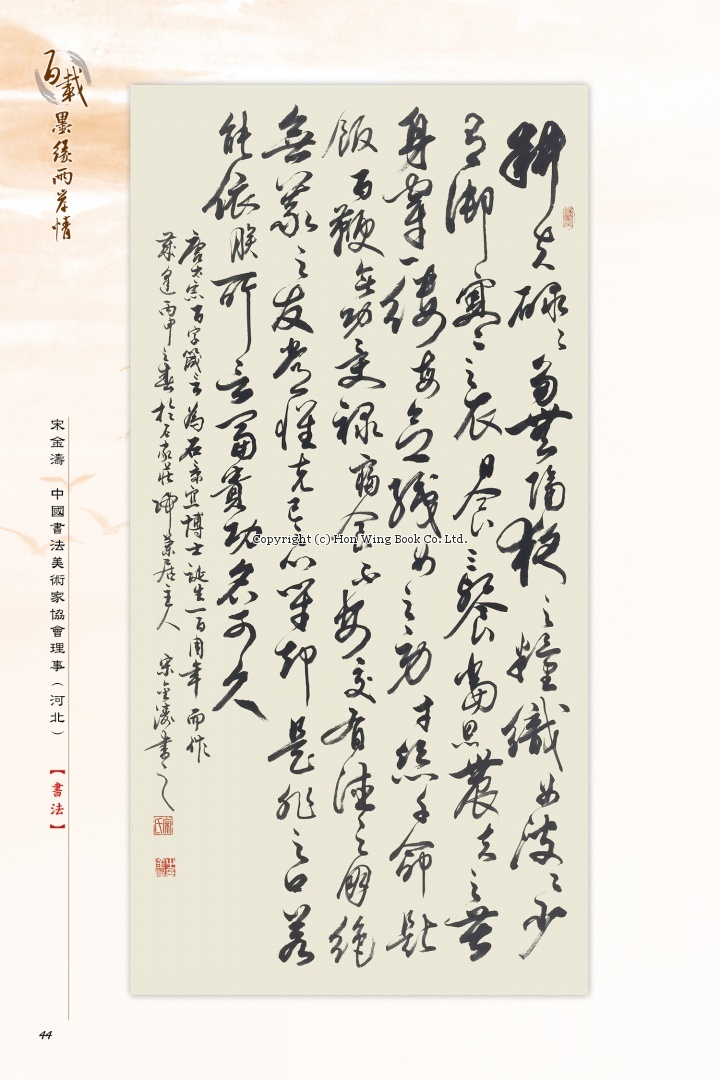 百載
墨緣兩岸情
耕夫碌〻多無隔夜之糧織女波〻少
有御寒之衣日食三餐當思農夫之苦
身穿一縷每念織女之勞寸絲千命匙
飯百鞭無功受祿寢食不安交有德之朋絕
無義之友常懷克己心閉却是非之口若
能依朕所言富貴功名可久
唐太宗百字箴言為石景宜博士誕生一百周年而作
歲逢丙申之春於石家莊居主人 宋金濤書之
宋金濤 中國書法美術家協會理事(河北)
【書法】
Copyright (c) Hon Wing Book Co. Ltd.
44